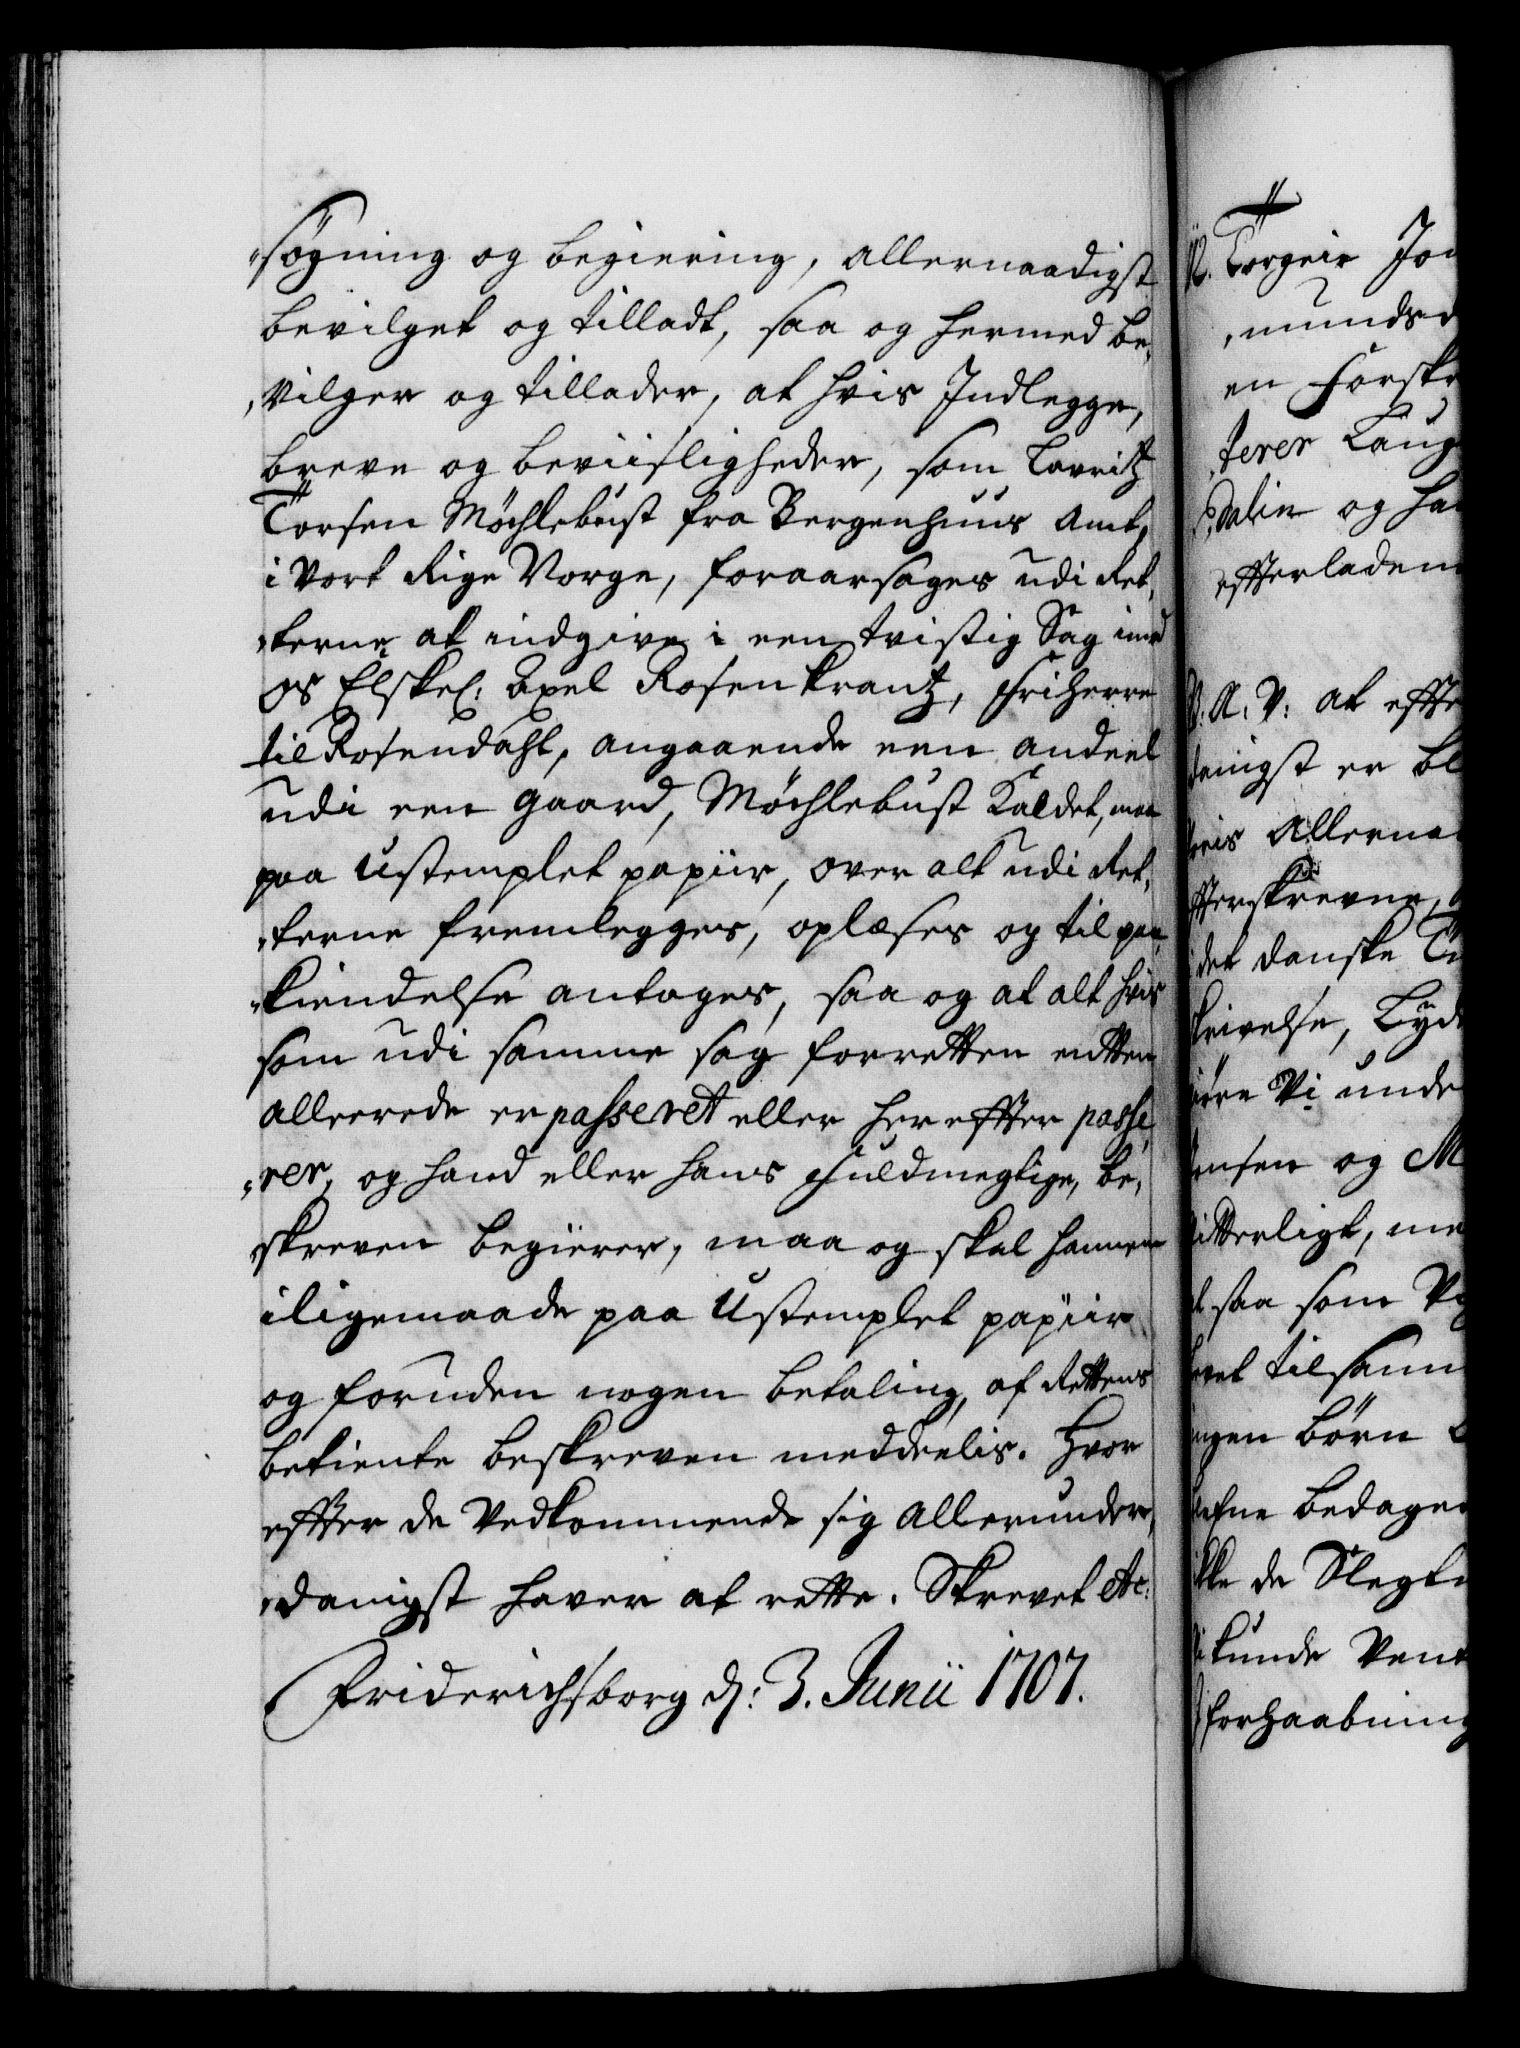 "søgning og begiering, allernaadigst
bevilget og tilladt, saa og hermed be,
,vilger og tillader, at hvis Indlegge,
breve og beviisligheder, som Lavritz
Torsen Møchlebust fra Bergenhuus Amt,
i Vort Rige Norge, foraarsages udi Ret,
,terne at indgive i een tvistig Sag imod
Os Elskel: Axel Rosenkrantz, Friherre
til Rosendahl, angaaende een andeel
udi een gaard, Møchlebust Kaldet, maa
paa Ustemplet papiir, over alt udi Ret,
,terne fremlegges, oplæses og til paa,
,kiendelse antages, saa og at alt hvis
som udi samme sag forretten entten
allerede er passeret eller her effter passe,
,rer, og hand eller hans Fuldmegtige, be,
skreven begierer, maa og skal hannem
iligemaade paa Ustemplet papiir
og foruden nogen betaling, af Rettens
betiente beskreven meddeelis. Hvor
effter de Vedkommende sig allerunder,
,danigst haver at rette. Skrevet etc:
Friderichsborg d: 3. Junii 1707.
N. Torgeir Jon
,munds
en Forskr
terer Laug
dalin og ha
effterladen
V. A. V: at effte
danigst er bl
Allerna
fterskrevne
det danske
skrivelse, Lyd
giøre Vi unde
ensen og M
itterligt, me
saa som V
evet tilsam
ingen børn
bedage
de Slegt
kunde Vent
forhaabning